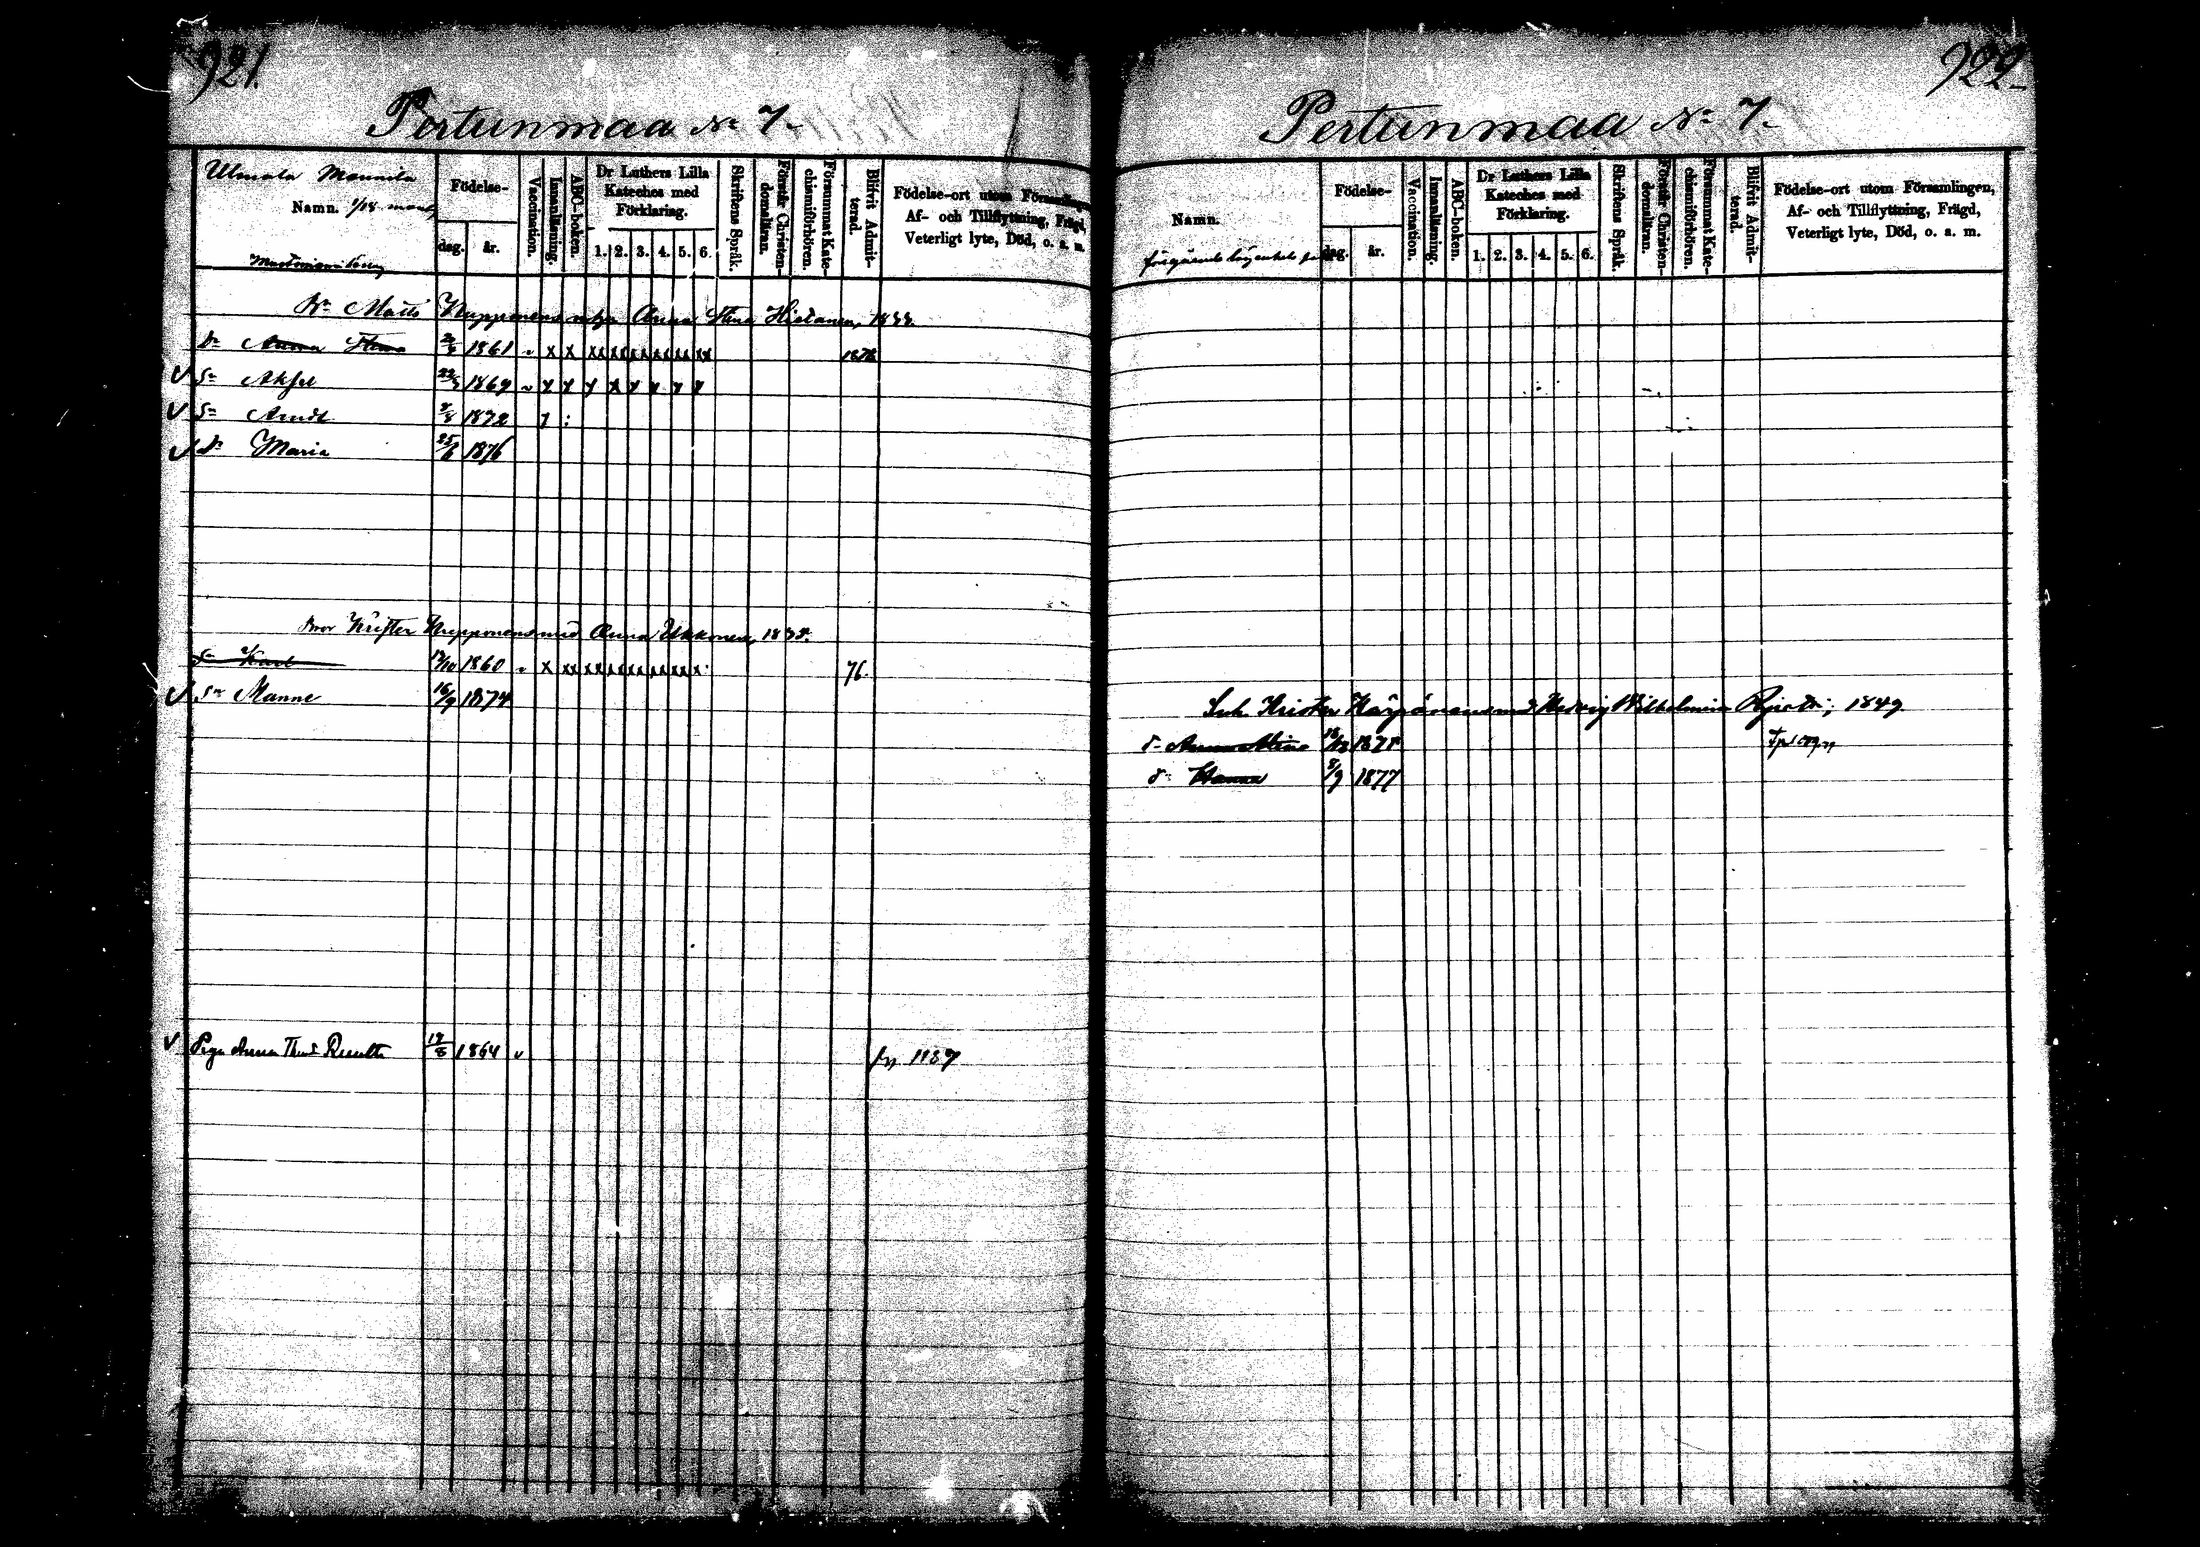 921.
Pertunmaa No 7.
Ulmala Mannila
Namn. 1/18 mant.
Födelse-
dag. år.
Vaccination.
Innanläsning.
ABC-boken.
Dr Luthers Lilla
Kateches med
Förklaring.
1. 2. 3. 4. 5. 6.
Skriftens Språk.
Förstår Christen-
domsläran.
Försummat Kate-
chismiförhören.
Blifvit Admit-
terad.
Födelse-ort utom Församlingen,
Af- och Tillflyttning, Frägd,
Veterligt lyte, Död, o. a. m.
Bn Matts Nupponens enka Anna Stina Hietanen,
dr Anna Stina 1861 x x xx xx xx xx xx xx 1878
v Sn Aksel 1869 x x x x x x x x
v Sn 1872
v dr Maria 25/6 1876
Bror Krister Nupponens med Anna Ukkonen,
sn Karl 17/10 1860 x xx xx xx xx xx xx 76.
v sn Manne 16/9 1874
v Piga Anna 19/8 1864 v 1137
922
Pertunmaa No 7.
Namn.
föregående
Födelse-
dag. år.
Vaccination.
Innanläsning.
ABC-boken.
Dr Luthers Lilla
Kateches med
Förklaring.
1. 2. 3. 4. 5. 6.
Skriftens Språk.
Förstår Christen-
domsläran.
Försummat Kate-
chismiförhören.
Blifvit Admit-
terad.
Födelse-ort utom Församlingen,
Af- och Tillflyttning, Frägd,
Veterligt lyte, Död, o. a. m.
Inh. Krister Kärpänens med Hedvig Wilhelmina 1849
d- Anna Stina
d- Hanna 8/9 1877